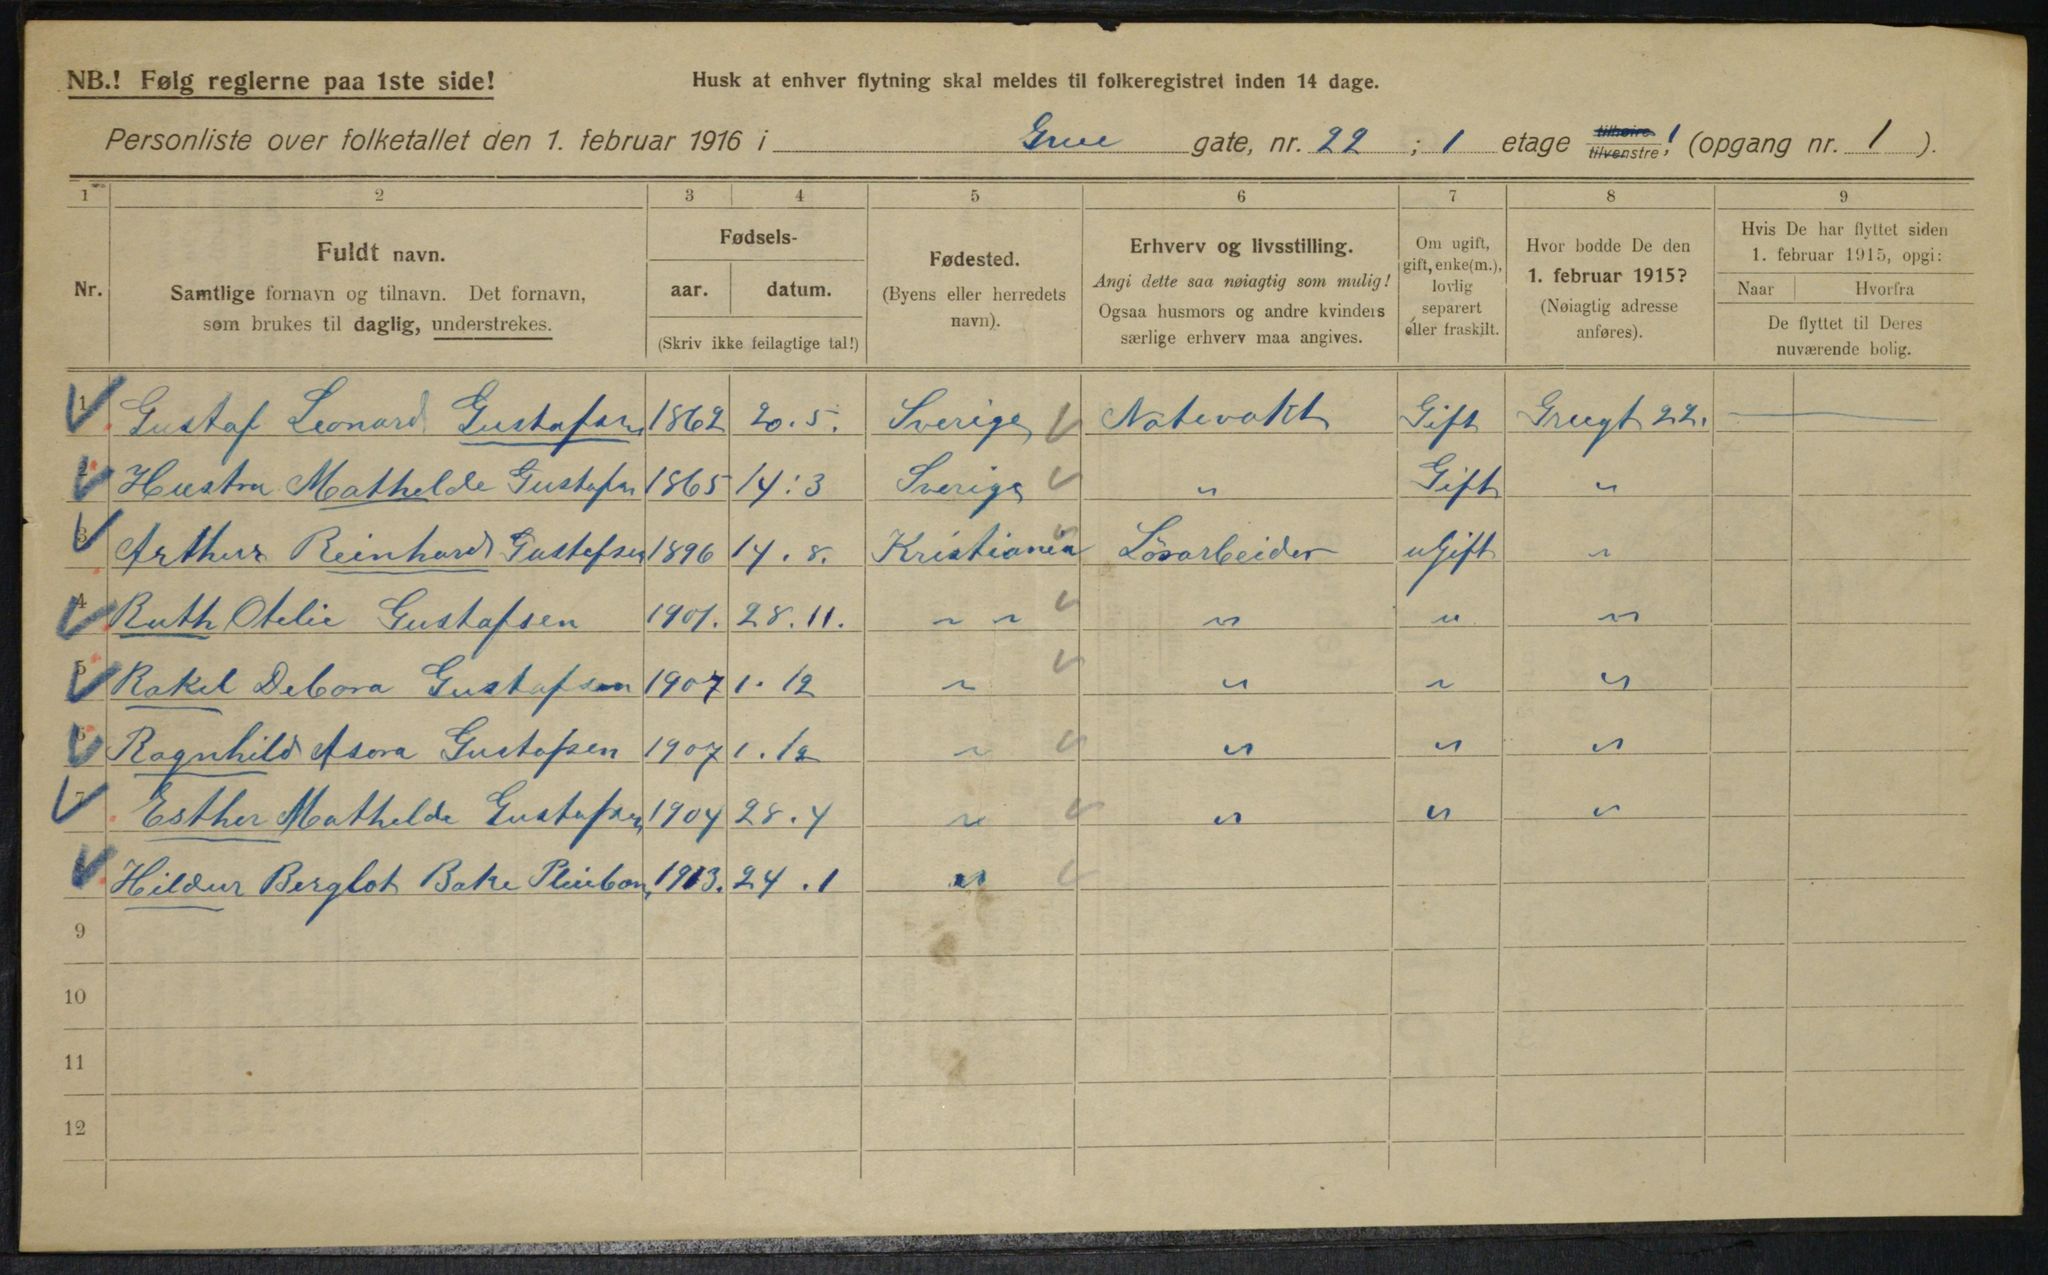 NB.! Følg reglerne paa 1ste side!
Husk at enhver flytning skal meldes til folkeregistret inden 14 dage.
Personliste over folketallet den 1. februar 1916 i Grue gate, nr. 22 ; 1 etage tilhøire/tilvenstre, ! (opgang nr. 1 ).
1 2 3 4 5 6 7 8 9
Nr.
Fuldt navn.
Samtlige fornavn og tilnavn. Det fornavn,
som brukes til daglig, understrekes.
Fødsels-
aar. datum.
(Skriv ikke feilagtige tal!)
Fødested.
(Byens eller herredets
navn).
Erhverv og livsstilling.
Angi dette saa nøiagtig som mulig!
Ogsaa husmors og andre kvinders
særlige erhverv maa angives.
Om ugift,
gift, enke(m.),
lovlig
separert
eller fraskilt.
Hvor bodde De den
1. februar 1915?
(Nøiagtig adresse
anføres).
Hvis De har flyttet siden
1. februar 1915, opgi:
Naar Hvorfra
De flyttet til Deres
nuværende bolig.
1 Gustaf Leonard Gustafsen 1862 20. 5. Sverige Natevakt Gift Gruegt 22. —
2 Hustru Mathelde Gustafsn 1865 14 : 3 Sverige " Gift "
3 Arthur Reinhard Gustafsen 1896 14. 8. Kristiania Lösarbeider uGift "
4 Ruth Otelie Gustafsen 1901. 28. 11. " " " " "
5 Rakel Debora Gustafsen 1907 1. 12 " " " "
6 Ragnhild Asora Gustafsen 1907 1. 12 " " " "
7 Esther Mathelde Gustafsen 1904 28. 4 " " " "
Hildur Berglot Bake 1913. 24. 1 "
9
10
11
12